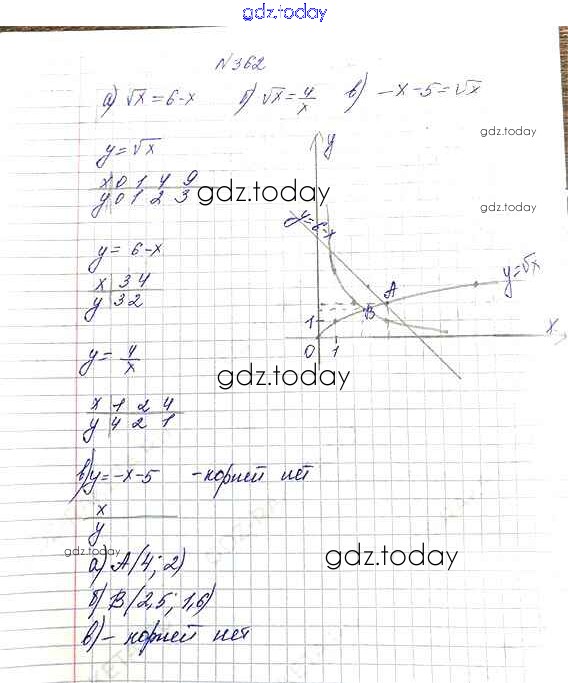 gdz.today
№362
а) √x = 6-x б) √x = 4/x в) -x-5 = √x
gdz.today
y = √x
x 0 1 4 9
y 0 1 2 3
gdz.today
gdz.today
y
y=6-x
y = 6-x
x 3 4
y 3 2
y=√x
A
B
1
x
0 1
y = 4/x
gdz.today
x 1 2 4
y 4 2 1
в) y = -x-5 - корней нет
x
y
gdz.today
gdz.today
а) A(4; 2)
б) B(2,5; 1,6)
в) - корней нет